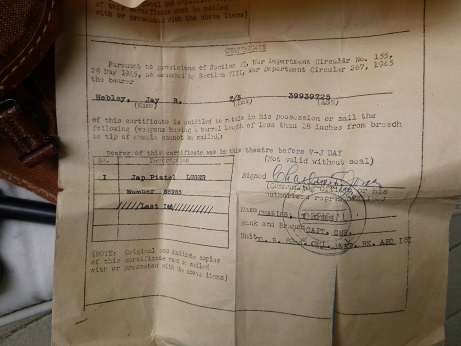 of this certificate must be mailed
with or presented with the above items)
CERTIFICATE
Pursuant to provisions of Section VI, War Department Circular No. 155,
28 May 1945, as amended by Section VIII, War Department Circular 267, 1945
the bearer
Hobley, Jay R. 39939725
(Name) (Rank) (ASN)
of this certificate is entitled to retain in his possession or mail the
following (weapons having a barrel length of less than 18 inches from breech
to tip of muzzle cannot be mailed;
bearer of this certificate was in this theatre before V-J DAY
NO. Description (Not valid without seal)
1 Jap Pistol LUGER Signed
Number 88985 (Commanding Officer or his
/////Last Item///// authorized representative)
Name
Rank and Branch CAPT. CWS.
Unit
(NOTE: Original and duplicate copies
of this certificate must be mailed
with or presented with the above items)